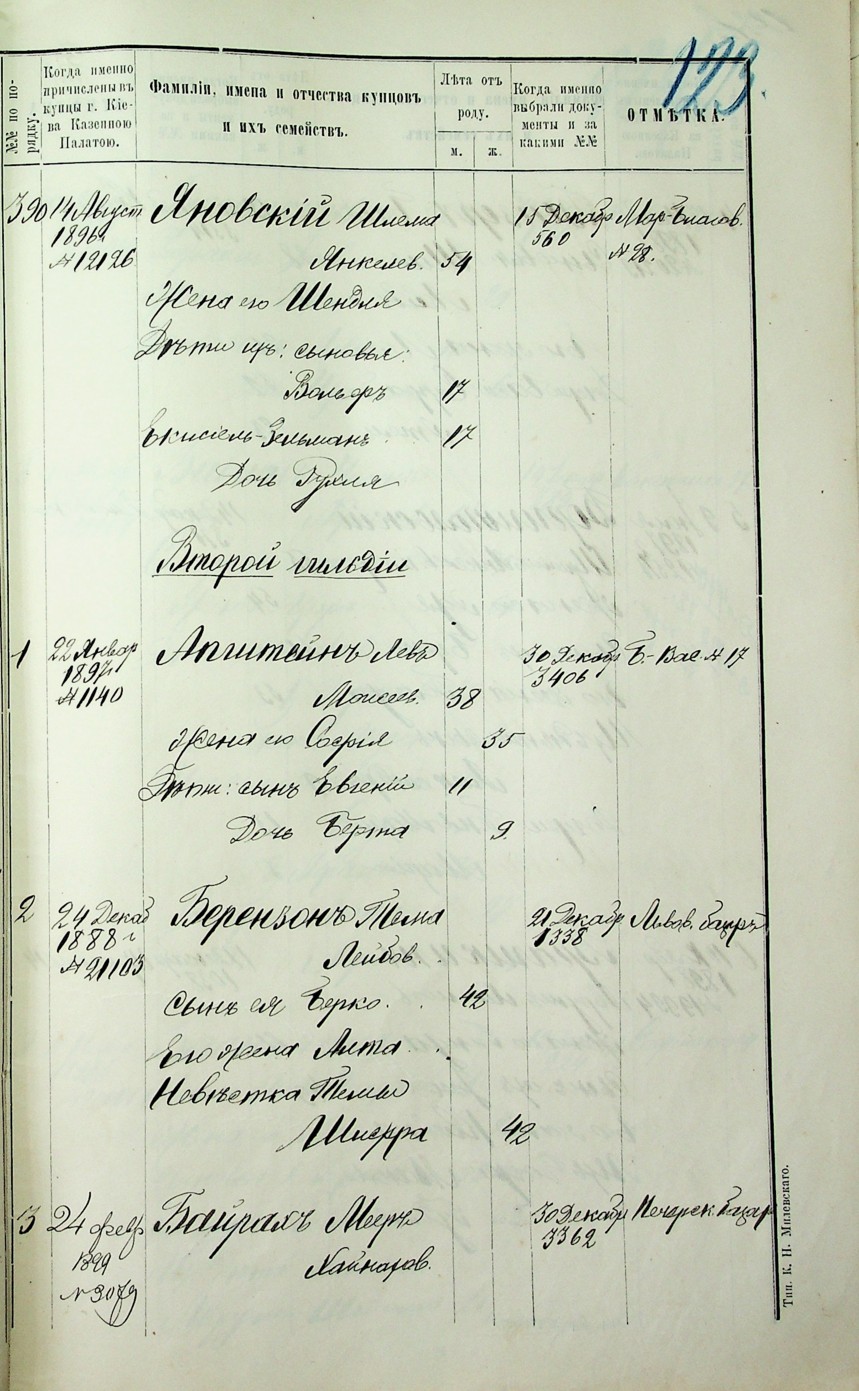 123.
№№ по по-
рядку.
Когда именно
причислены въ
купцы г. Кіе-
ва Казенною
Палатою.
Фамиліи, имена и отчества купцовъ
и ихъ семействъ.
Лѣта отъ
роду.
м. ж.
Когда именно
выбрали доку-
менты и за
какими №№
ОТМѢТКА.
390 14 Август Яновскій Шлема 15 Декабр Мар-Благов.
1896 г 560 № 28.
№ 12126 Янкелев. 54
Жена его Шендля
Дѣти ихъ: сыновья:
Вольфъ 17
Екисіель-Зельманъ 17
Дочь Рухля
Второй гильдіи
1 22 Январ Апштейнъ Левъ 30 Декабр Б.-Вас. № 17
1897 г 3406
№ 1140 Моисеев. 38
Жена его Софія 35
Дѣти: сынъ Евгеній 11
Дочь Берта 9.
2 24 Декаб Берензонъ Тема 21 Декабр Львов. базръ
1888 г 1338
№ 21103 Лейбов.
Сынъ ея Берко. 42
Его жена Алта
Невѣстка Темы
Шифра 42
3 24 февр Байрахъ Мееръ 30 Декабр Печерск. базар
1899 3362
№ 3079
Тип. К. Н. Милевскаго.